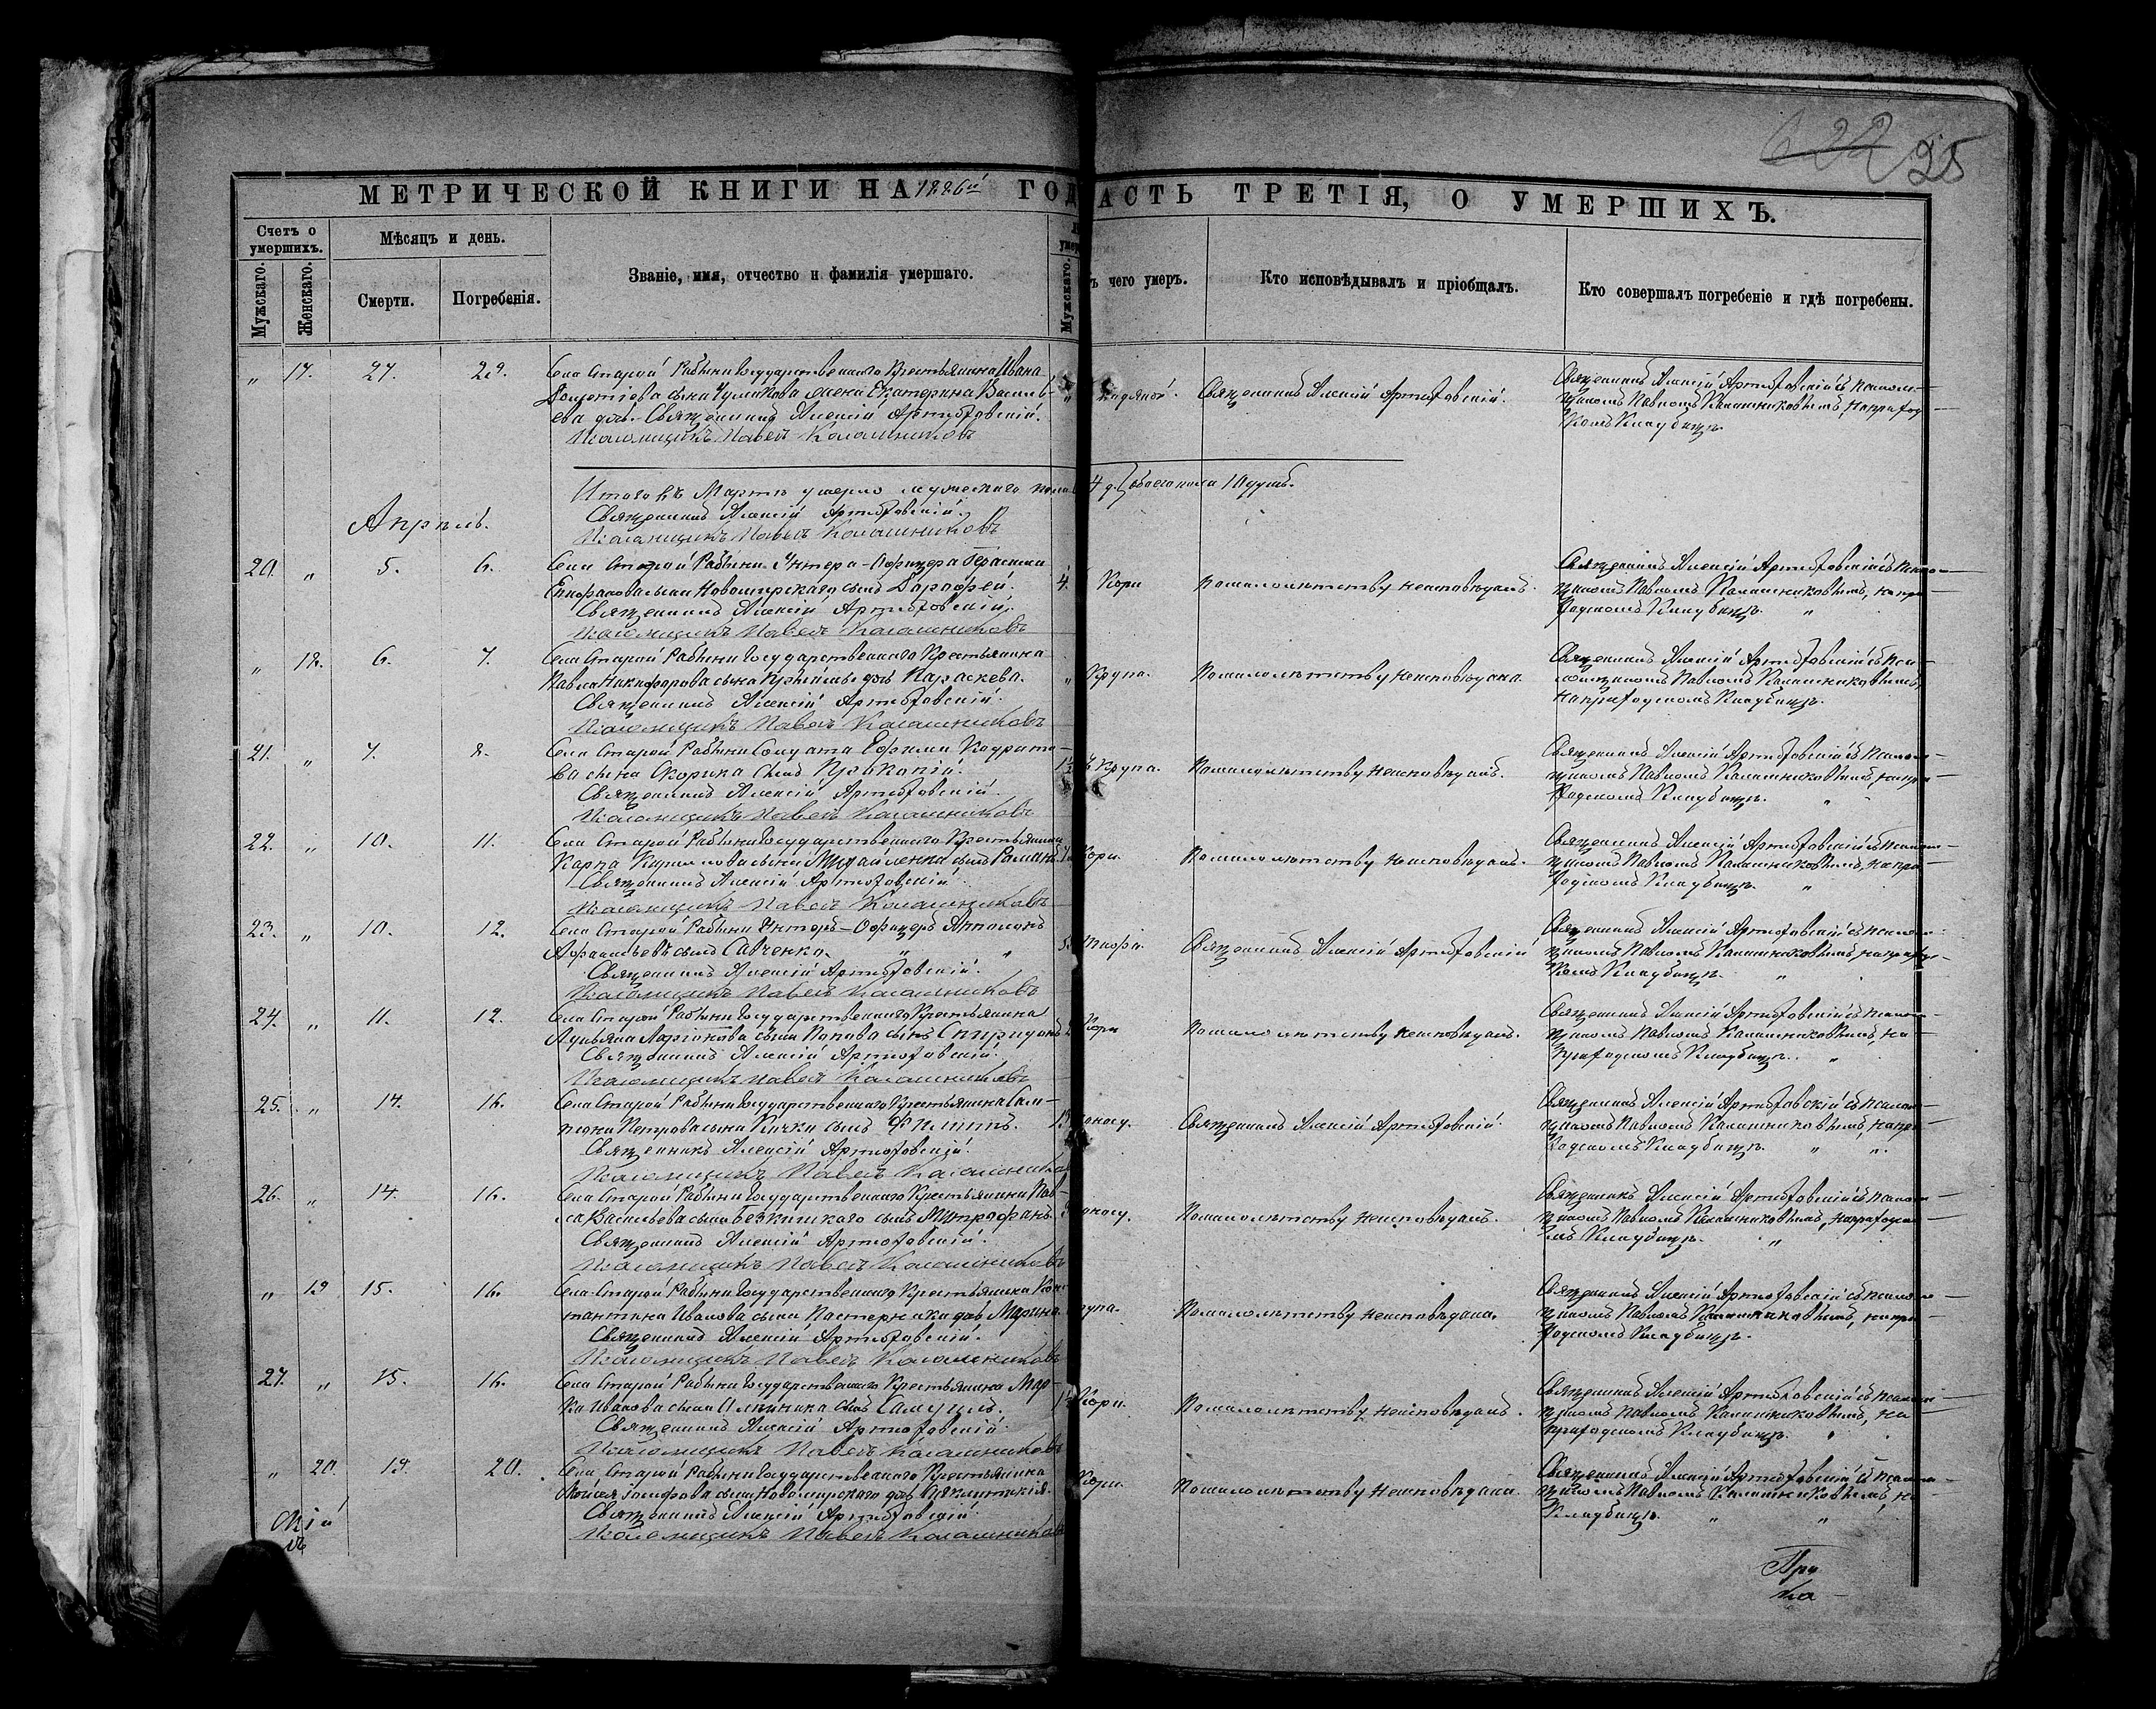 22 25
МЕТРИЧЕСКОЙ КНИГИ НА 1886й ГОД
АСТЬ ТРЕТІЯ, О УМЕРШИХЪ.
Счетъ о умершихъ.
Мѣсяцъ и день.
Званіе, имя, отчество и фамилія умершаго.
ъ чего умеръ.
Кто исповѣдывалъ и пріобщалъ.
Кто совершалъ погребеніе и гдѣ погребены.
Мужскаго.
Женскаго.
Смерти.
Погребенія.
Мужскаго.
" 17. 27. 29. Села Старой Рабыни Государственнаго Крестьянина Ивана
сына жена Екатерина Василь
ева дочь. Священникъ Алексій Артюховскій.
Псаломщикъ Павелъ Калашниковъ
Священникъ Алексій Артюховскій.
Священникъ Алексій Артюховскій съ псалом-
щикомъ Павломъ Калашниковымъ, на приход
комъ Кладбищѣ.
Итого въ Мартѣ умерло мужескаго пола
4 д. обоего пола 10 душъ.
Священникъ Алексій Артюховскій.
Псаломщикъ Павелъ Калашниковъ
Апрѣль.
20. " 5. 6. Села Старой Рабыни Унтера-Офицера Герасима
сына Новомирскаго сынъ Дорофей.
Священникъ Алексій Артюховскій.
Псаломщикъ Павелъ Калашниковъ
4. Кори
По малолѣтству не исповѣданъ.
Священникъ Алексій Артюховскій съ псалом-
щикомъ Павломъ Калашниковымъ, на при-
ходскомъ Кладбищѣ. "
" 18. 6. 7. Села Старой Рабыни Государственнаго Крестьянина
Павла Никифорова сына дочь Параскева.
Священникъ Алексій Артюховскій.
Псаломщикъ Павелъ Калашниковъ
" Крупа.
По малолѣтству не исповѣдана.
Священникъ Алексій Артюховскій съ пса-
ломщикомъ Павломъ Калашниковымъ,
на приходскомъ Кладбищѣ.
21. " 7. 8. Села Старой Рабыни Солдата Ефима Кодрато-
ва сына Скорика сынъ Прокопій.
Священникъ Алексій Артюховскій.
Псаломщикъ Павелъ Калашниковъ
Крупа.
По малолѣтству не исповѣданъ.
Священникъ Алексій Артюховскій съ псалом-
щикомъ Павломъ Калашниковымъ, на при-
ходскомъ Кладбищѣ. "
22. " 10. 11. Села Старой Рабыни Государственнаго Крестьянина
Карпа Кириллова сына Михайленка сынъ Романъ
Священникъ Алексій Артюховскій.
Псаломщикъ Павелъ Калашниковъ
Кори.
По малолѣтству не исповѣданъ.
Священникъ Алексій Артюховскій съ псалом-
щикомъ Павломъ Калашниковымъ, на при-
ходскомъ Кладбищѣ. "
23. " 10. 12. Села Старой Рабыни Унтеръ-Офицеръ
Афанасьевъ сынъ Савченко. " "
Священникъ Алексій Артюховскій.
Псаломщикъ Павелъ Калашниковъ
Тифа.
Священникъ Алексій Артюховскій
Священникъ Алексій Артюховскій съ псалом-
щикомъ Павломъ Калашниковымъ, на приходс-
комъ Кладбищѣ. "
24. " 11. 12. Села Старой Рабыни Государственнаго Крестьянина
Лукьяна Ларіонова сына Попова сынъ Спиридонъ
Священникъ Алексій Артюховскій.
Псаломщикъ Павелъ Калашниковъ
Кори
По малолѣтству не исповѣданъ.
Священникъ Алексій Артюховскій съ псалом-
щикомъ Павломъ Калашниковымъ, на
приходскомъ Кладбищѣ. "
25. " 14. 16. Села Старой Рабыни Государственнаго Крестьянина Сам-
псона Петрова сына Клочки сынъ Филиппъ.
Священникъ Алексій Артюховскій.
Псаломщикъ Павелъ Калашников
оносу.
Священникъ Алексій Артюховскій.
Священникъ Алексій Артюховскій съ псалом-
щикомъ Павломъ Калашниковымъ, на при-
ходскомъ Кладбищѣ. " "
26. " 14. 16. Села Старой Рабыни Государственнаго Крестьянина Пав-
ла Васильева сына сынъ Митрофанъ.
Священникъ Алексій Артюховскій.
Псаломщикъ Павелъ Калашниковъ
оносу.
По малолѣтству не исповѣданъ.
Священникъ Алексій Артюховскій съ псалом-
щикомъ Павломъ Калашниковымъ, на приходско-
мъ Кладбищѣ. "
" 19 15. 16. Села Старой Рабыни Государственнаго Крестьянина Конс
тантина Иванова сына Пастернака дочь Марина.
Священникъ Алексій Артюховскій.
Псаломщикъ Павелъ Калашниковъ
рупа.
По малолѣтству не исповѣдана.
Священникъ Алексій Артюховскій съ псалом-
щикомъ Павломъ Калашниковымъ, на при-
ходскомъ Кладбищѣ.
27. " 15. 16. Села Старой Рабыни Государственнаго Крестьянина Мар-
ка Иванова сына Олейника сынъ Самуилъ.
Священникъ Алексій Артюховскій.
Псаломщикъ Павелъ Калашниковъ
Кори.
По малолѣтству не исповѣданъ.
Священникъ Алексій Артюховскій съ псалом-
щикомъ Павломъ Калашниковымъ, на
приходскомъ Кладбищѣ.
" 20. 19. 20. Села Старой Рабыни Государственнаго Крестьянина
сына Новомирскаго дочь
Священникъ Алексій Артюховскій.
Псаломщикъ Павелъ Калашников
Кори.
По малолѣтству не исповѣдана.
Священникъ Алексій Артюховскій съ псалом-
щикомъ Павломъ Калашниковымъ, на
Кладбищѣ. " "
При
ка